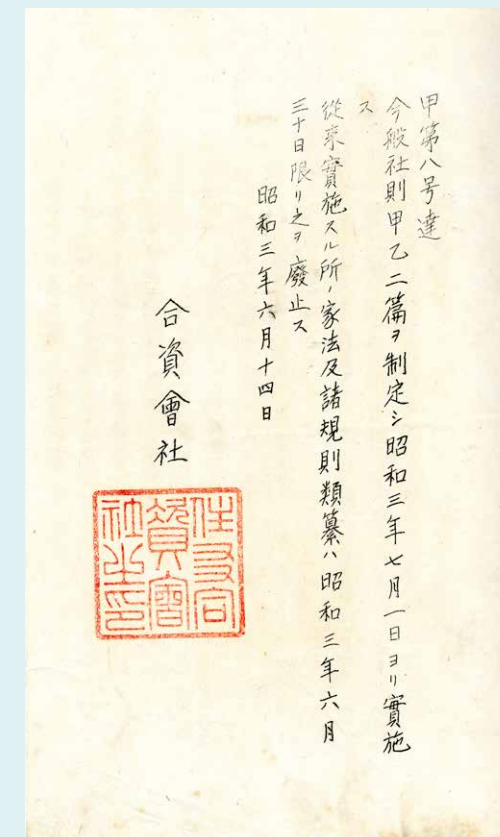 甲第八号達
今般社則甲乙二篇ヲ制定シ昭和三年七月一日ヨリ實施
ス
從來實施スル所ノ家法及諸規則類纂ハ昭和三年六月
三十日限リ之ヲ廢止ス
昭和三年六月十四日
合資會社
住友合
資會
社之印